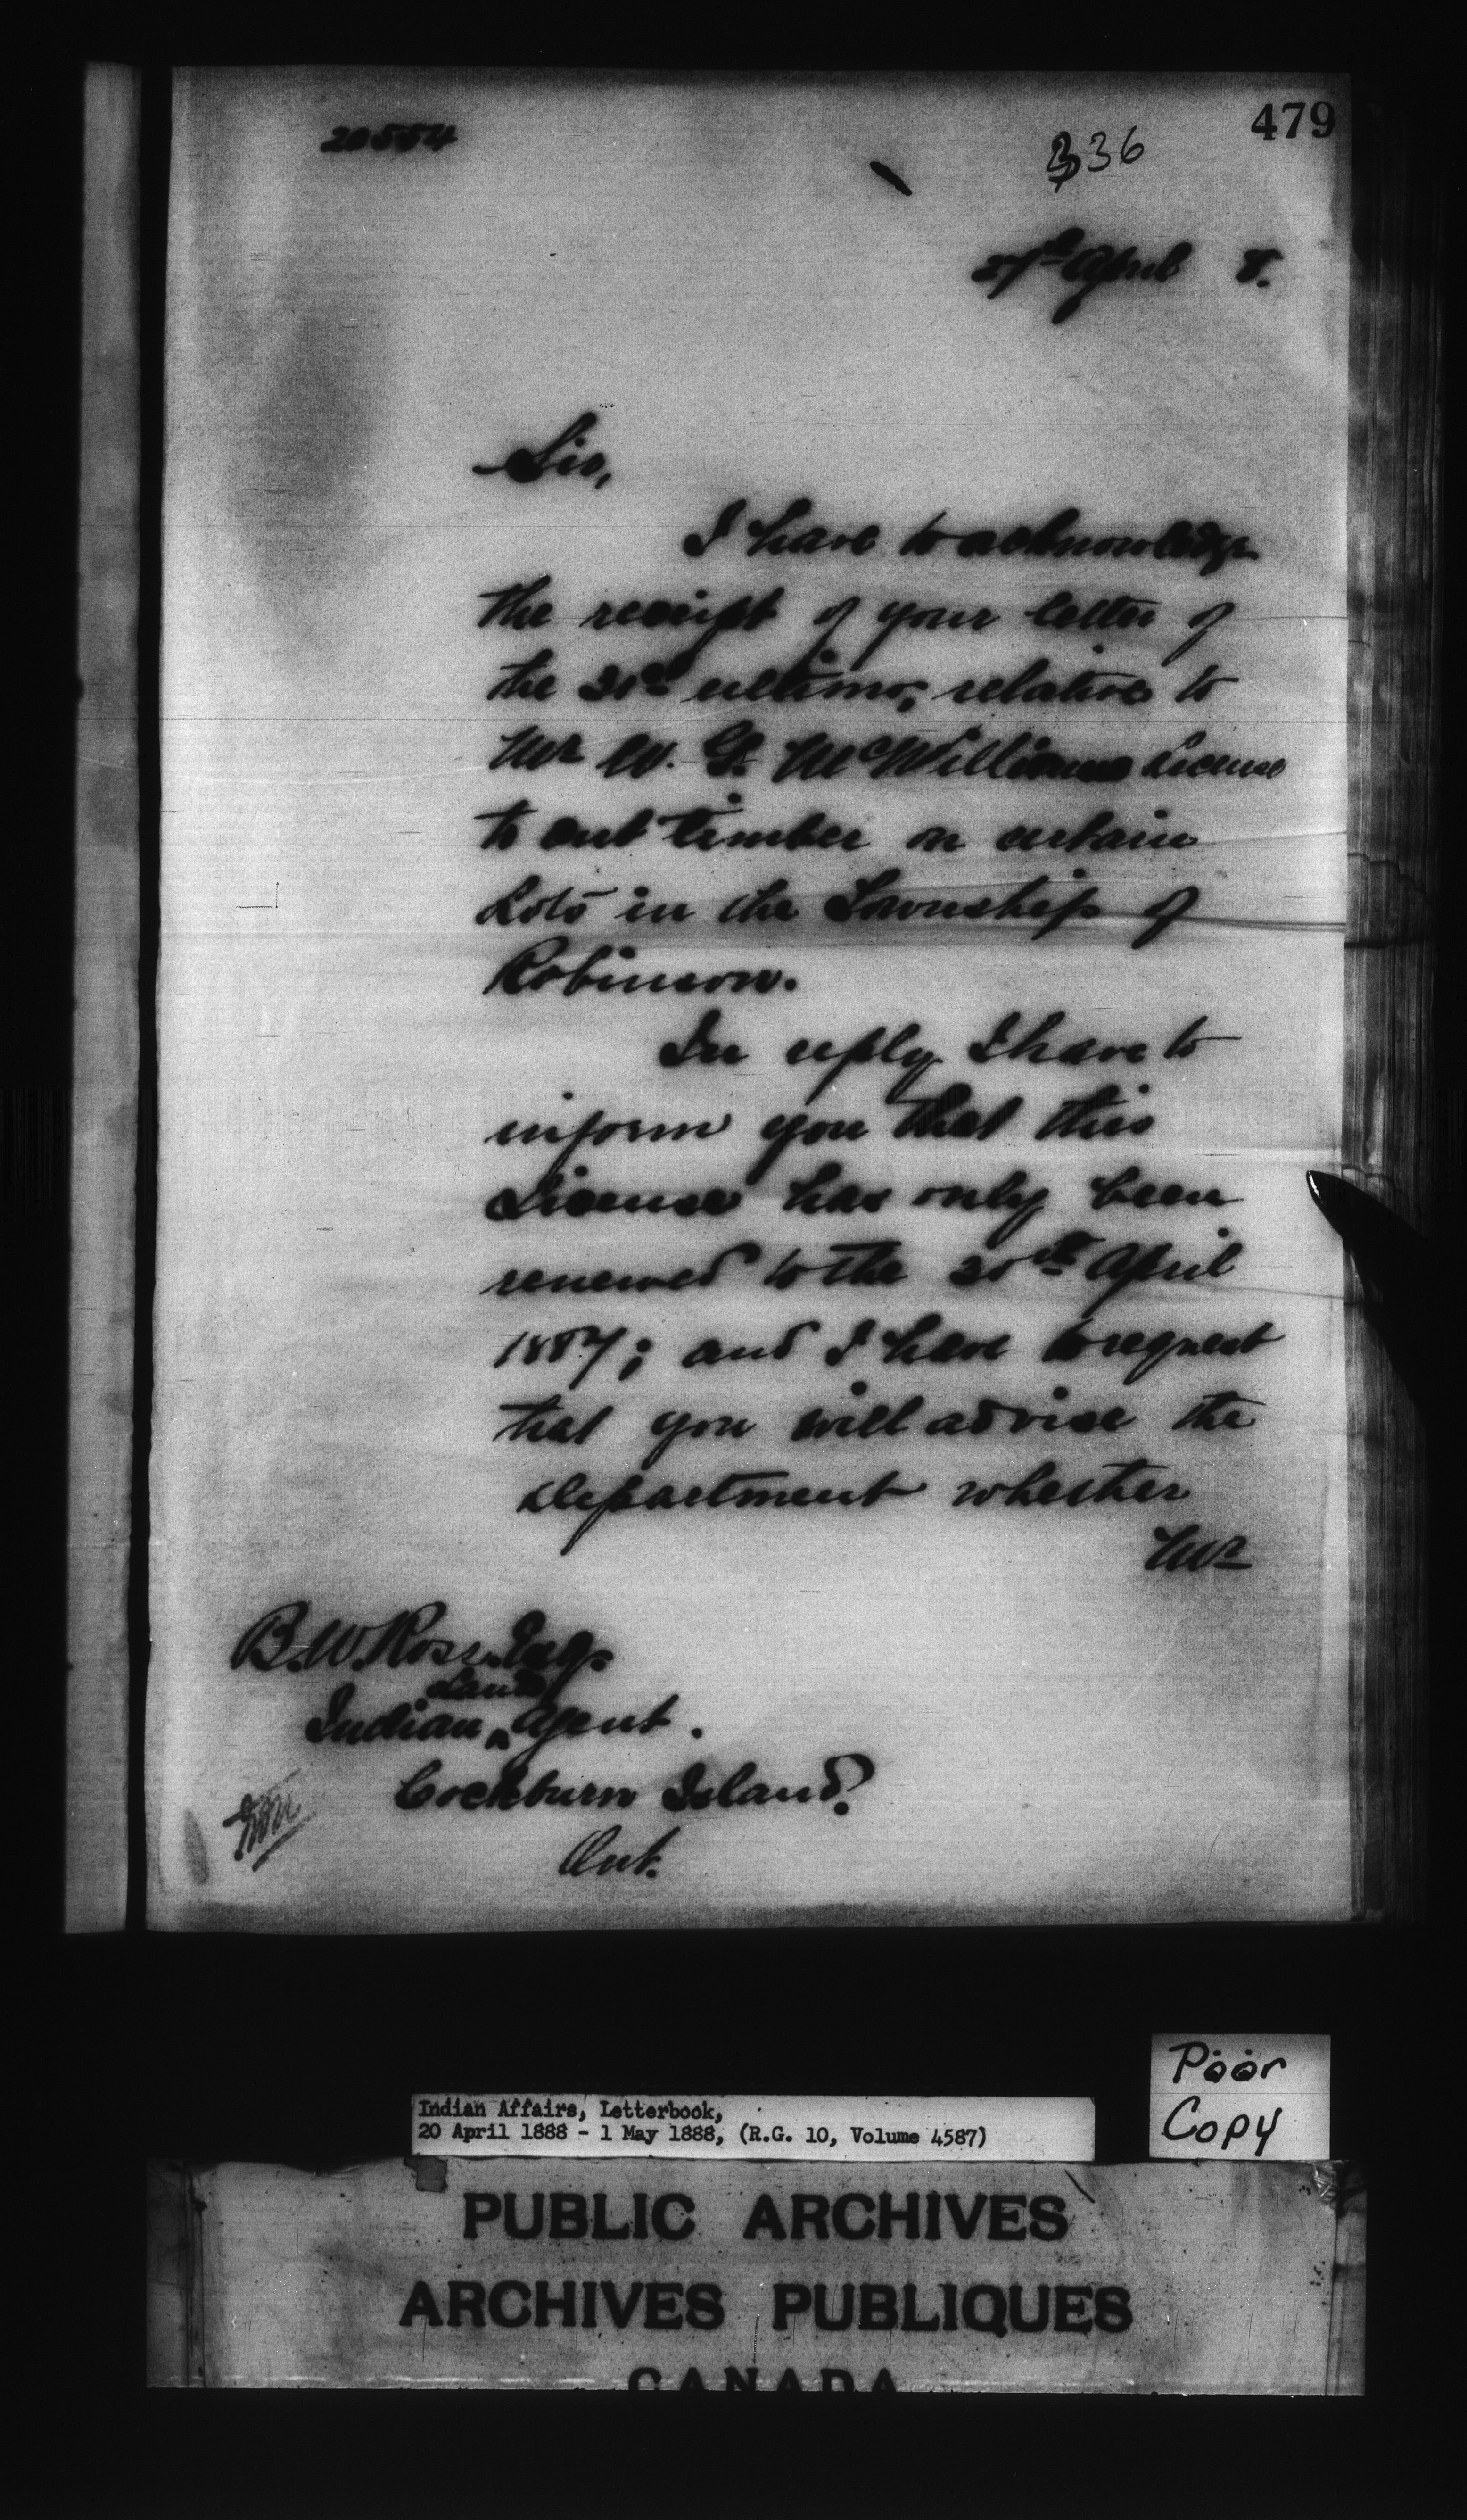 479
20554
336
27th April 8.
Sir,
I have to acknowledge
the receipt of your letter of
the 21st ultimo, relative to
Mr W. G. McWilliams License
to cut timber on certain
Lots in the Township of
Robinson.
In reply I have to
inform you that this
License has only been
renewed to the 30th April
1887; and I have to request
that you will advise the
Department whether
Mr
B. W. Ross, Esq.
Land
Indian ^ Agent.
Cockburn Island.
Ont.
Poor
Copy
Indian Affairs, Letterbook,
20 April 1888 - 1 May 1888, (R.G. 10, Volume 4587)
PUBLIC ARCHIVES
ARCHIVES PUBLIQUES
CANADA